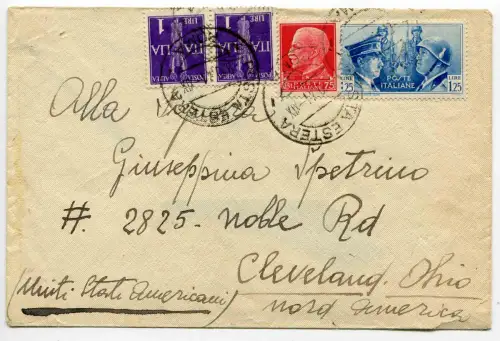 1
LIRE
1
LIRE
ITALIA
75
LIRE
POSTE
ITALIANE
LIRE
1.25
1.25
POSTA ESTERA
Alla
Giuseppina Spetrino
#. 2825 - noble Rd
Cleveland. Ohio
(Uniti Stati Americani)
nord America